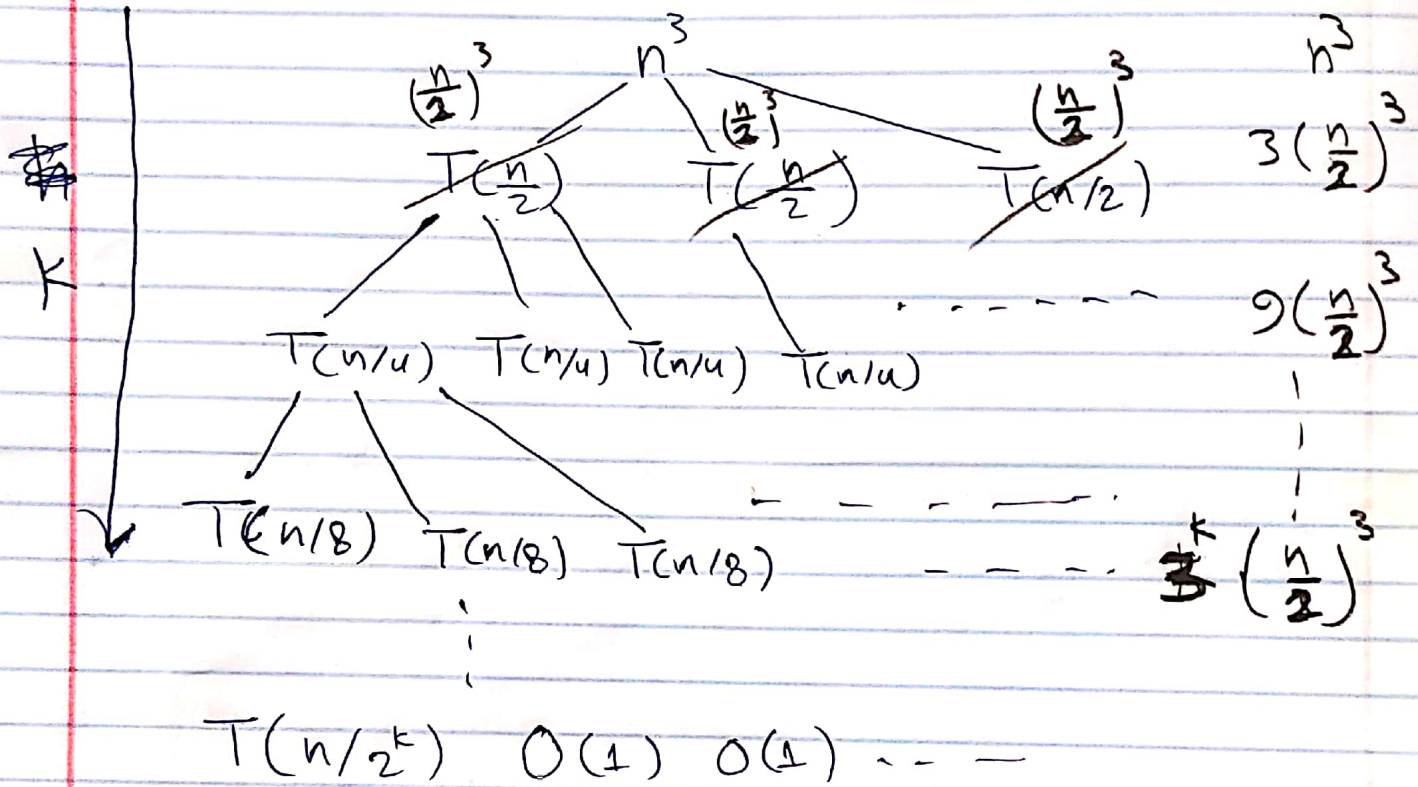 n³ n³
(n/2)³ (n/2)³ (n/2)³
T(n/2) T(n/2) T(n/2) 3(n/2)³
K 9(n/2)³
T(n/4) T(n/4) T(n/4) T(n/4)
T(n/8) T(n/8) T(n/8) 3ᵏ(n/2)³
T(n/2ᵏ) O(1) O(1)